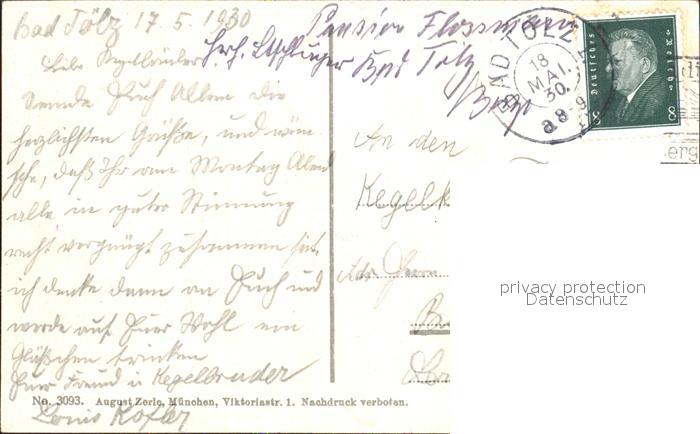 Bad Tölz 17.5.1930
Liebe Kegelbrüder
Sende Euch Allen die
herzlichsten Grüße, und wün-
sche, daß Ihr am Montag Abend
alle in guter Stimmung
recht vergnügt zusammen seit.
ich denke dann an Euch und
werde auf Euer Wohl ein
Gläschen trinken
Euer Freund u Kegelbruder
Louis Kofler
Pension Flossmann
Bad Tölz
Bayr
BAD TÖLZ
18
MAI.
30.
a 8-9
Deutsches Reich
8 8
An den
Kegelk
Adr Herrn
privacy protection
Datenschutz
No. 3093. August Zerle, München, Viktoriastr. 1. Nachdruck verboten.